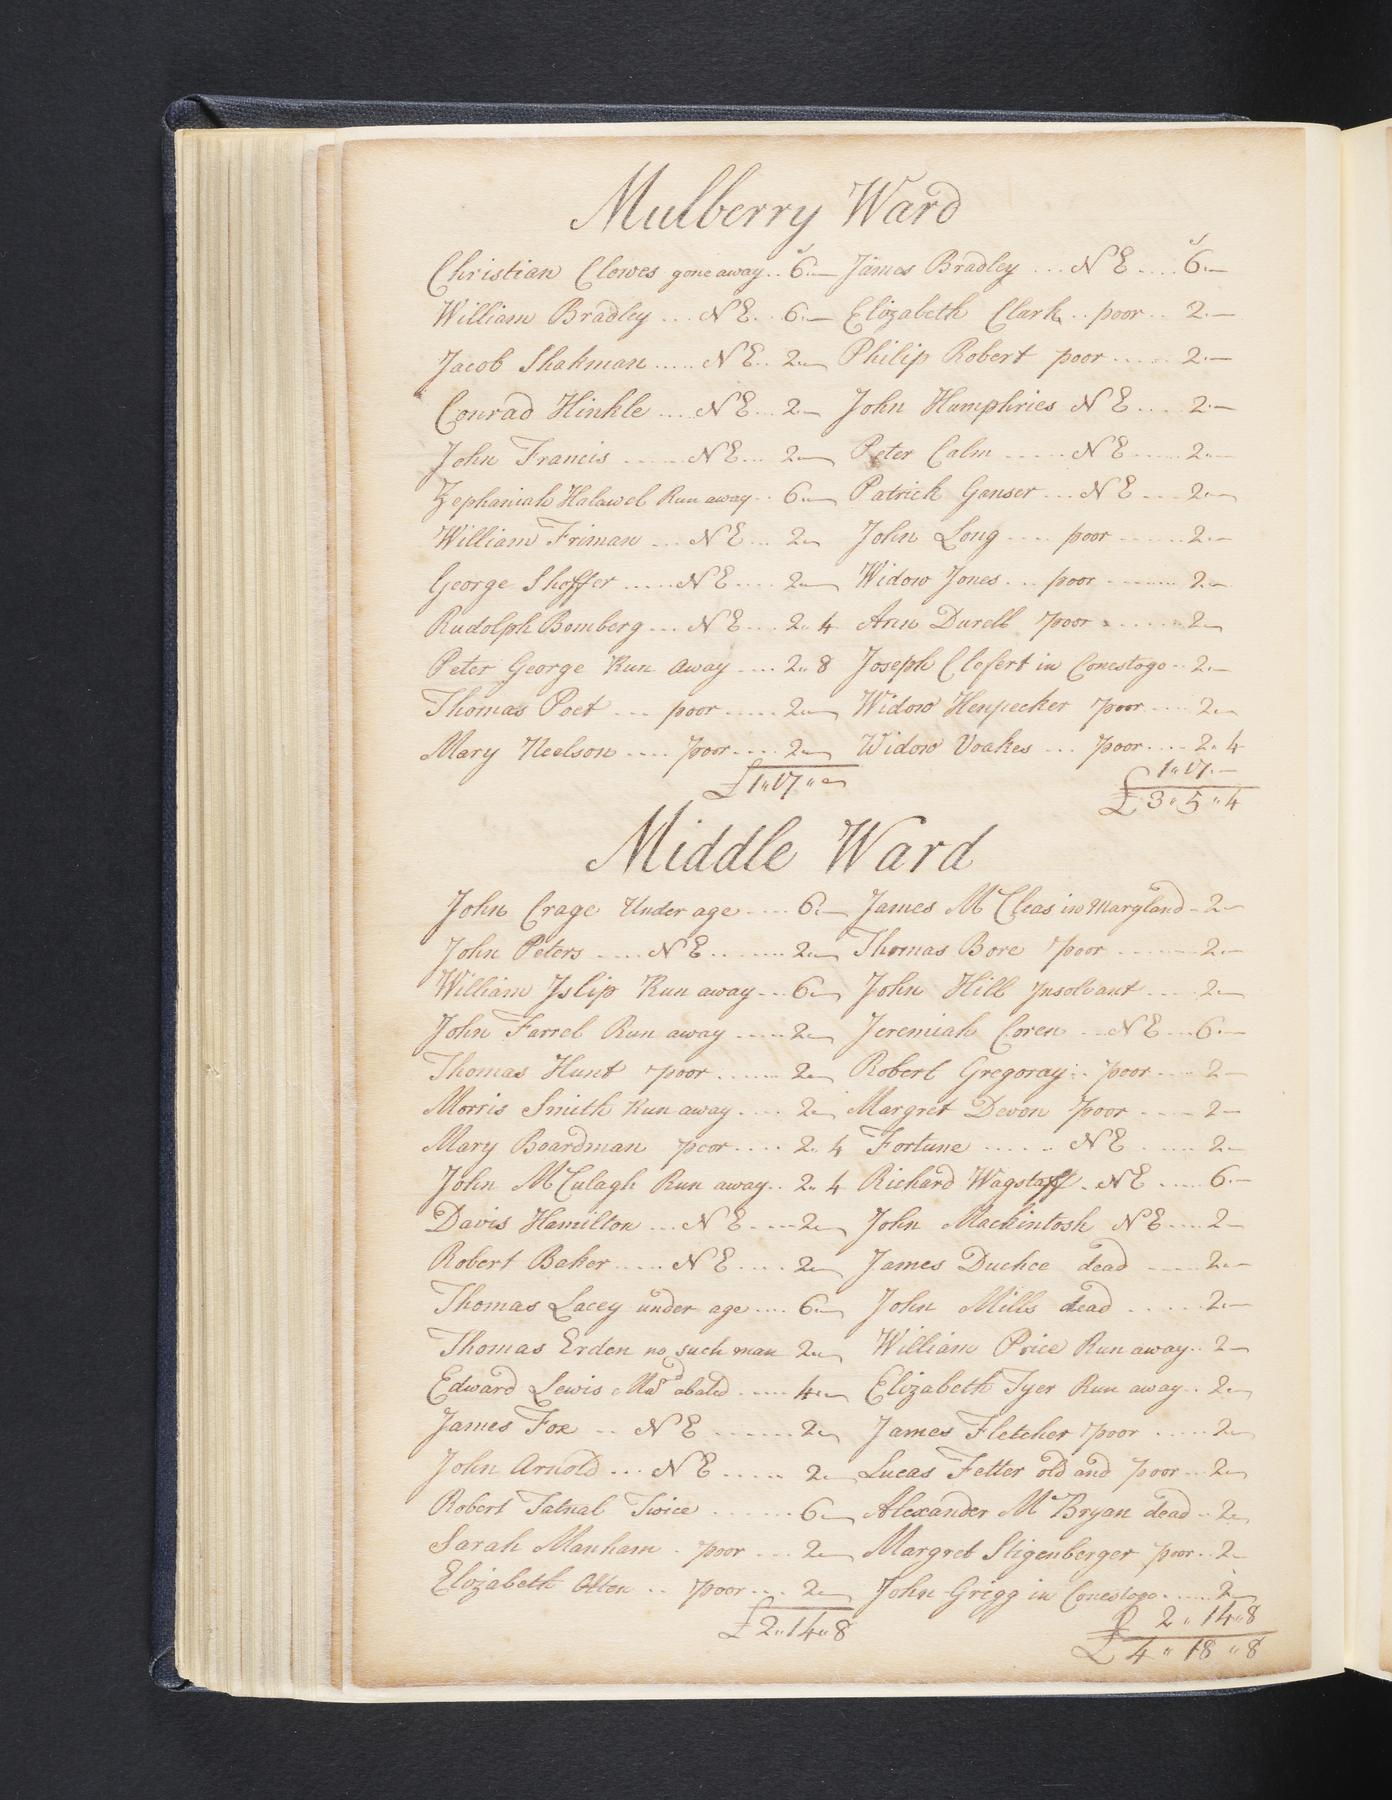 Mulberry Ward
Christian Clowes gone away .. 6.— James Bradley ... N E .... 6.—
William Bradley ... N E .. 6.— Elizabeth Clark .. poor .. 2.—
Jacob Shakman ..... N E .. 2.— Philip Robert poor ..... 2.—
Conrad Hinkle .... N E ... 2.— John Humphries N E .... 2.—
John Francis ...... N E ... 2.— Peter Calm ..... N E ...... 2.—
Zephaniah Halawel Run away .. 6.— Patrick Ganser ... N E .... 2.—
William Friman ... N E ... 2.— John Long .... poor ....... 2.—
George Shoffer ..... N E .... 2.— Widow Jones ... poor ........ 2.—
Rudolph Bomberg ... N E .... 2..4 Ann Durell poor ....... 2.—
Peter George Run away .... 2..8 Joseph Clefert in Conestogo .. 2.—
Thomas Poet ... poor ..... 2.— Widow Henpecker poor .... 2.—
Mary Neelson .... poor .... 2.— Widow Voakes ... poor .... 2.4
£1..17..— 1..17.—
£3..5..4
Middle Ward
John Crage Under age .... 6.— James McCleas in Maryland - 2.—
John Peters .... N E ........ 2.— Thomas Bore poor ........ 2.—
William Islip Run away ... 6.— John Hill Insolvant .... 2.—
John Farrel Run away ..... 2.— Jeremiah Coren ... N E ... 6.—
Thomas Hunt poor ...... 2.— Robert Gregoray .. poor .... 2.—
Morris Smith Run away .... 2.— Margret Devon poor .... 2.—
Mary Boardman poor .... 2..4 Fortune ...... N E ..... 2.—
John McCulagh Run away .. 2..4 Richard Wagstaff . N E ..... 6.—
Davis Hamilton ... N E .... 2.— John Mackintosh N E .... 2.—
Robert Baker ..... N E .... 2.— James Duchee dead ..... 2.—
Thomas Lacey under age .... 6.— John Mills dead ..... 2.—
Thomas Erden no such man 2.— William Price Run away .. 2.—
Edward Lewis abated ..... 4.— Elizabeth Tyer Run away .. 2.—
James Fox .. N E ....... 2.— James Fletcher poor ..... 2.—
John Arnold ... N E ..... 2.— Lucas Fetter old and poor ... 2.—
Robert Tatnal Twice ...... 6.— Alexander McBryan dead .. 2.—
Sarah Manham . poor ... 2.— Margret Stigenberger poor .. 2.—
Elizabeth Olten .. poor .... 2.— John Grigg in Conestogo ..... 2.—
£2..14..8 2..14..8
£4..18..8